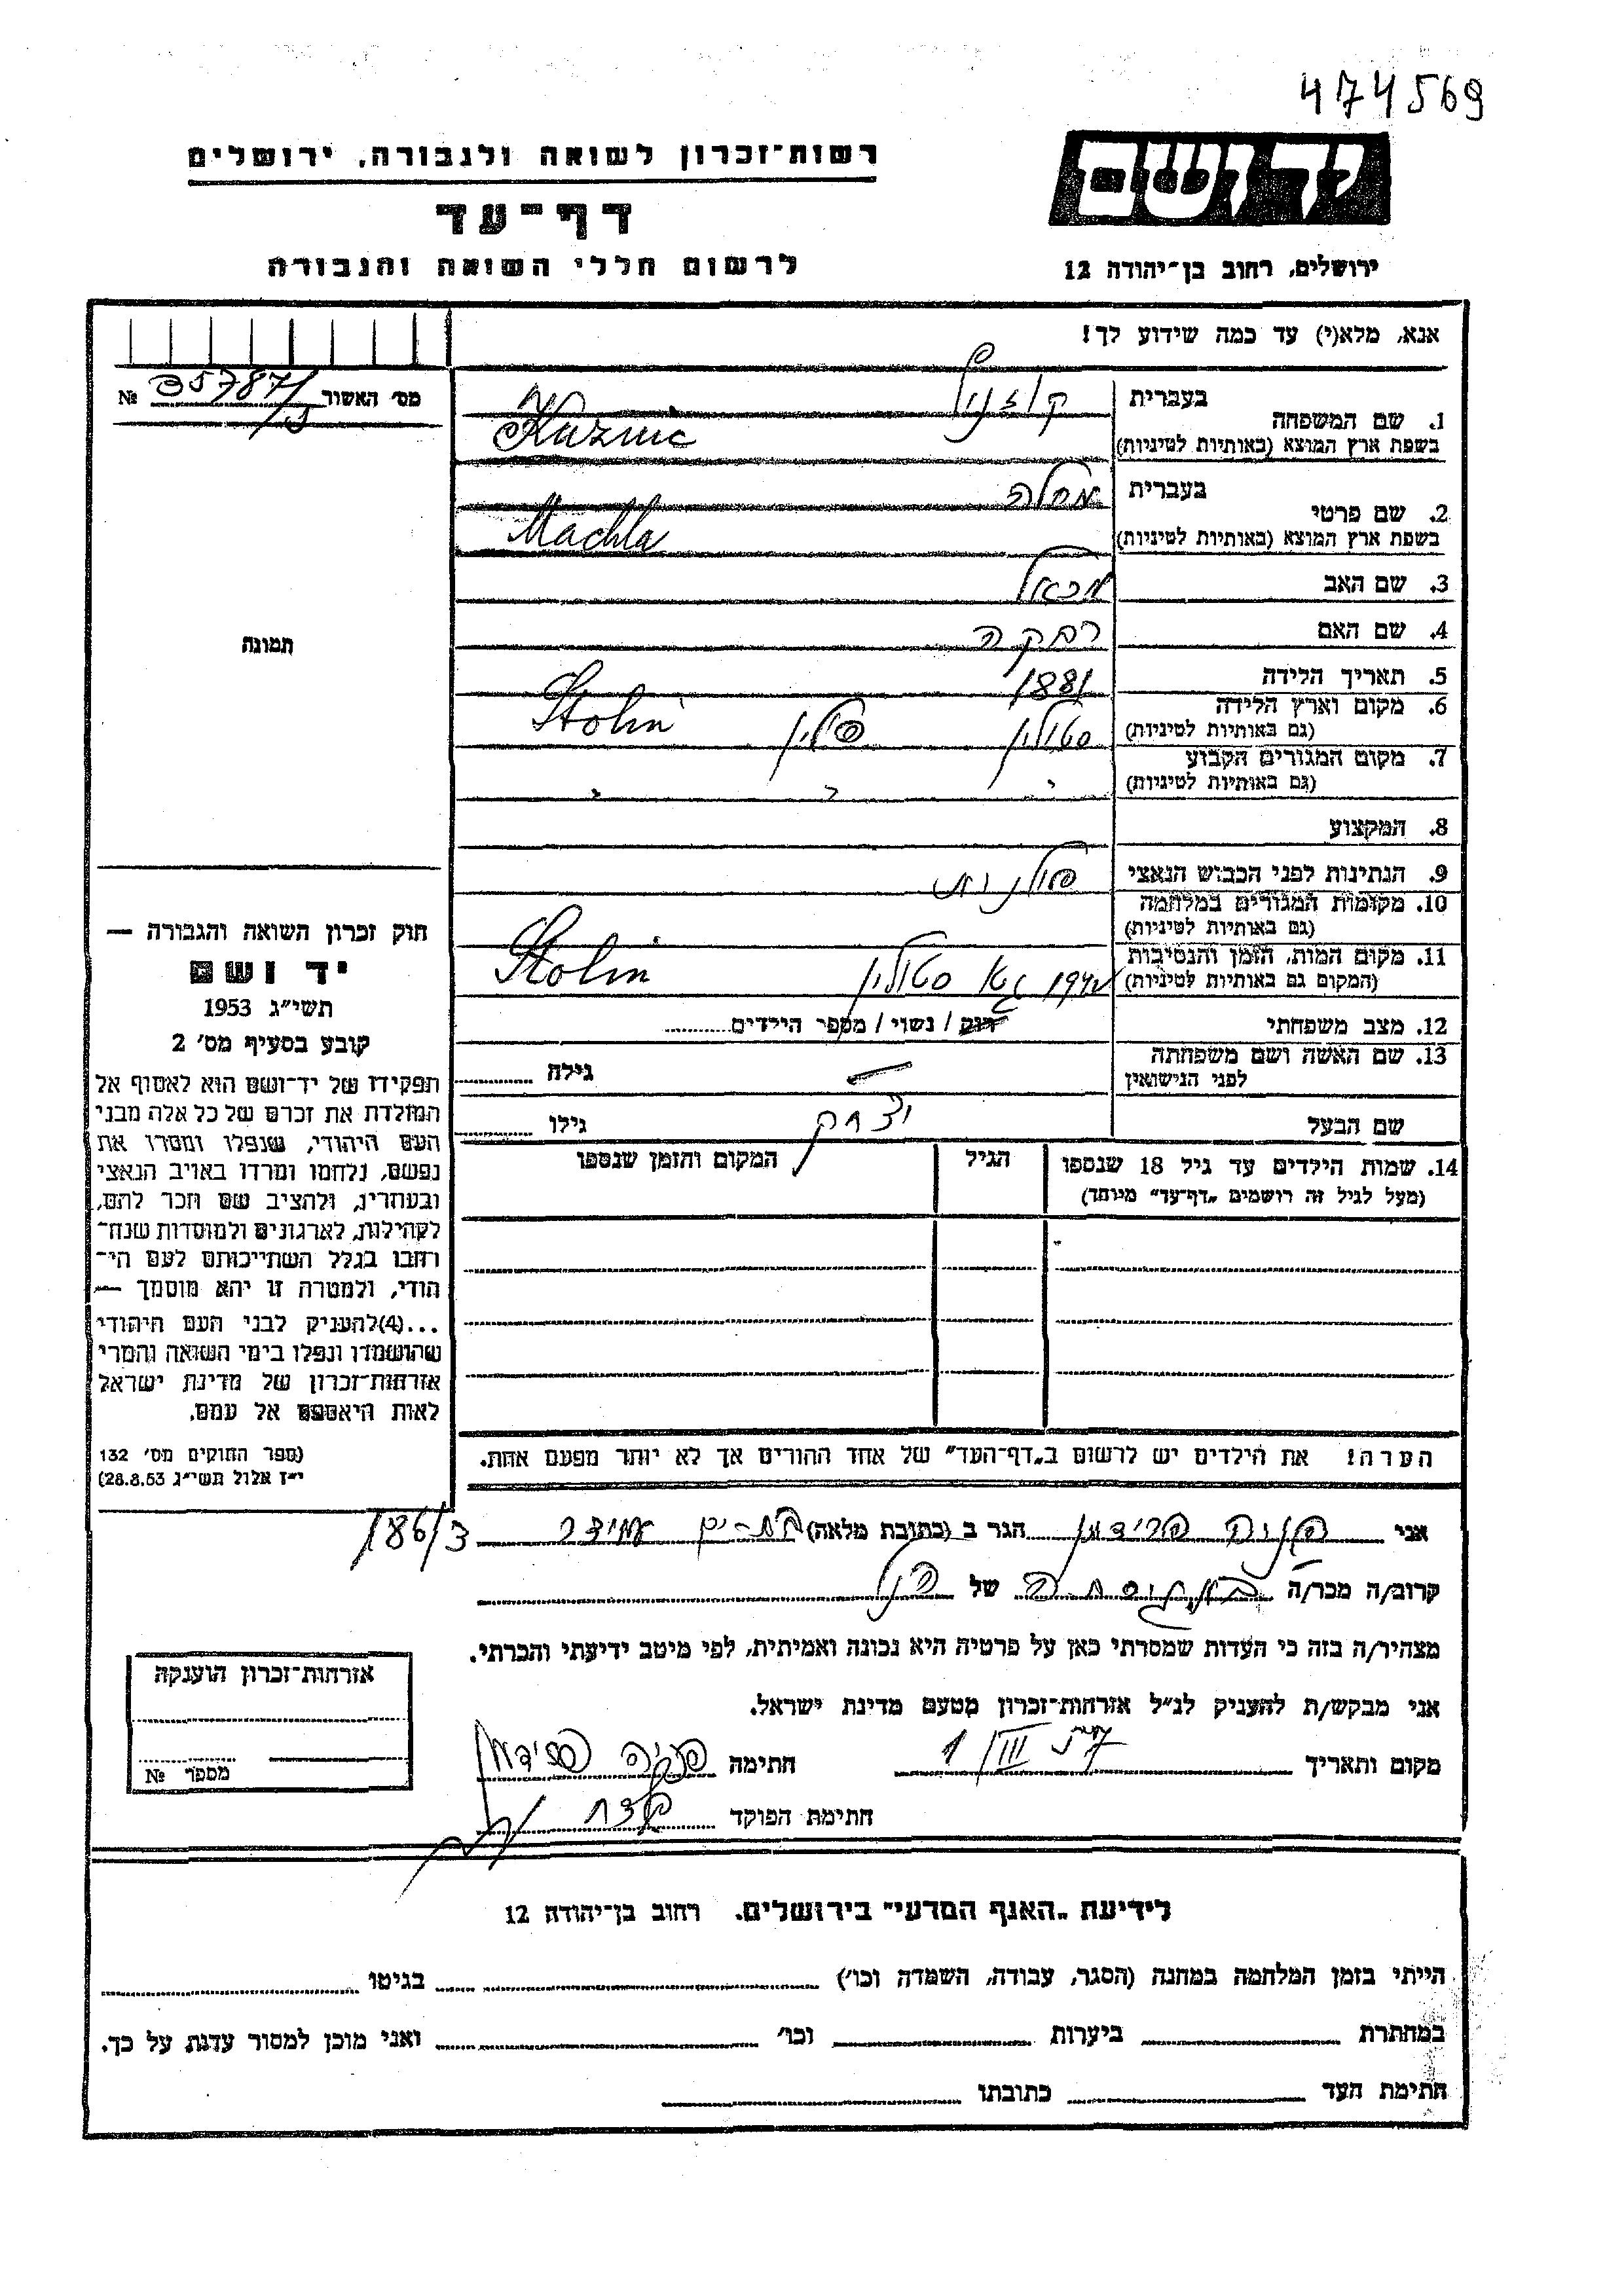 474569
יד ושם
ירושלים, רחוב בן־יהודה 12
רשות־זכרון לשואה ולגבורה, ירושלים
דף־עד
לרשום חללי השואה והגבורה
אנא, מלא(י) עד כמה שידוע לך!
מס׳ האשור 35787/ №
1. שם המשפחה
בעברית
בשפת ארץ המוצא (באותיות לטיניות) Kuznic
2. שם פרטי
בעברית מחלה
בשפת ארץ המוצא (באותיות לטיניות) Machla
3. שם האב מכאל
4. שם האם רבקה
5. תאריך הלידה 1881
6. מקום וארץ הלידה (גם באותיות לטיניות) סטולין פולין Stolin
7. מקום המגורים הקבוע (גם באותיות לטיניות) " " "
8. המקצוע
9. הנתינות לפני הכבוש הנאצי פולנית
10. מקומות המגורים במלחמה (גם באותיות לטיניות)
11. מקום המות, הזמן והנסיבות (המקום גם באותיות לטיניות) 1942 גטו סטולין Stolin
12. מצב משפחתי רווק / נשוי / מספר הילדים
13. שם האשה ושם משפחתה לפני הנישואין — גילה
שם הבעל יצחק גילו
14. שמות הילדים עד גיל 18 שנספו (מעל לגיל זה רושמים „דף־עד" מיוחד) הגיל המקום והזמן שנספו
הערה! את הילדים יש לרשום ב„דף־העד" של אחד ההורים אך לא יותר מפעם אחת.
תמונה
חוק זכרון השואה והגבורה —
יד ושם
תשי״ג 1953
קובע בסעיף מס׳ 2
תפקידו של יד־ושם הוא לאסוף אל
המולדת את זכרם של כל אלה מבני
העם היהודי, שנפלו ומסרו את
נפשם, נלחמו ומרדו באויב הנאצי
ובעוזריו, ולהציב שם וזכר להם,
לקהילות, לארגונים ולמוסדות שנח־
רבו בגלל השתייכותם לעם הי־
הודי, ולמטרה זו יהא מוסמך —
...(4)להעניק לבני העם היהודי
שהושמדו ונפלו בימי השואה והמרי
אזרחות־זכרון של מדינת ישראל
לאות היאספם אל עמם.
(ספר החוקים מס׳ 132
י״ז אלול תשי״ג 28.8.53)
אני פניה פרידמן הגר ב (כתובת מלאה) בת-ים עמידר 186/3
קרוב/ה מכר/ה של הנ״ל
מצהיר/ה בזה כי העדות שמסרתי כאן על פרטיה היא נכונה ואמיתית, לפי מיטב ידיעתי והכרתי.
אני מבקש/ת להעניק לנ״ל אזרחות־זכרון מטעם מדינת ישראל.
מקום ותאריך 1/III חתימה פניה פרידמן
חתימת הפוקד
אזרחות־זכרון הוענקה
מספר №
לידיעת „האגף המדעי" בירושלים. רחוב בן־יהודה 12
הייתי בזמן המלחמה במחנה (הסגר, עבודה, השמדה וכו׳) בגיטו
במחתרת ביערות וכו׳ ואני מוכן למסור עדות על כך.
חתימת העד כתובתו